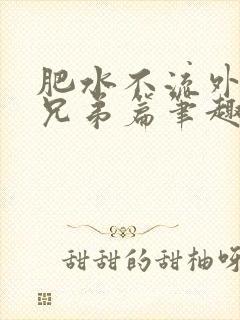 肥水不流外
兄弟篇笔趣
甜甜的甜柚呀